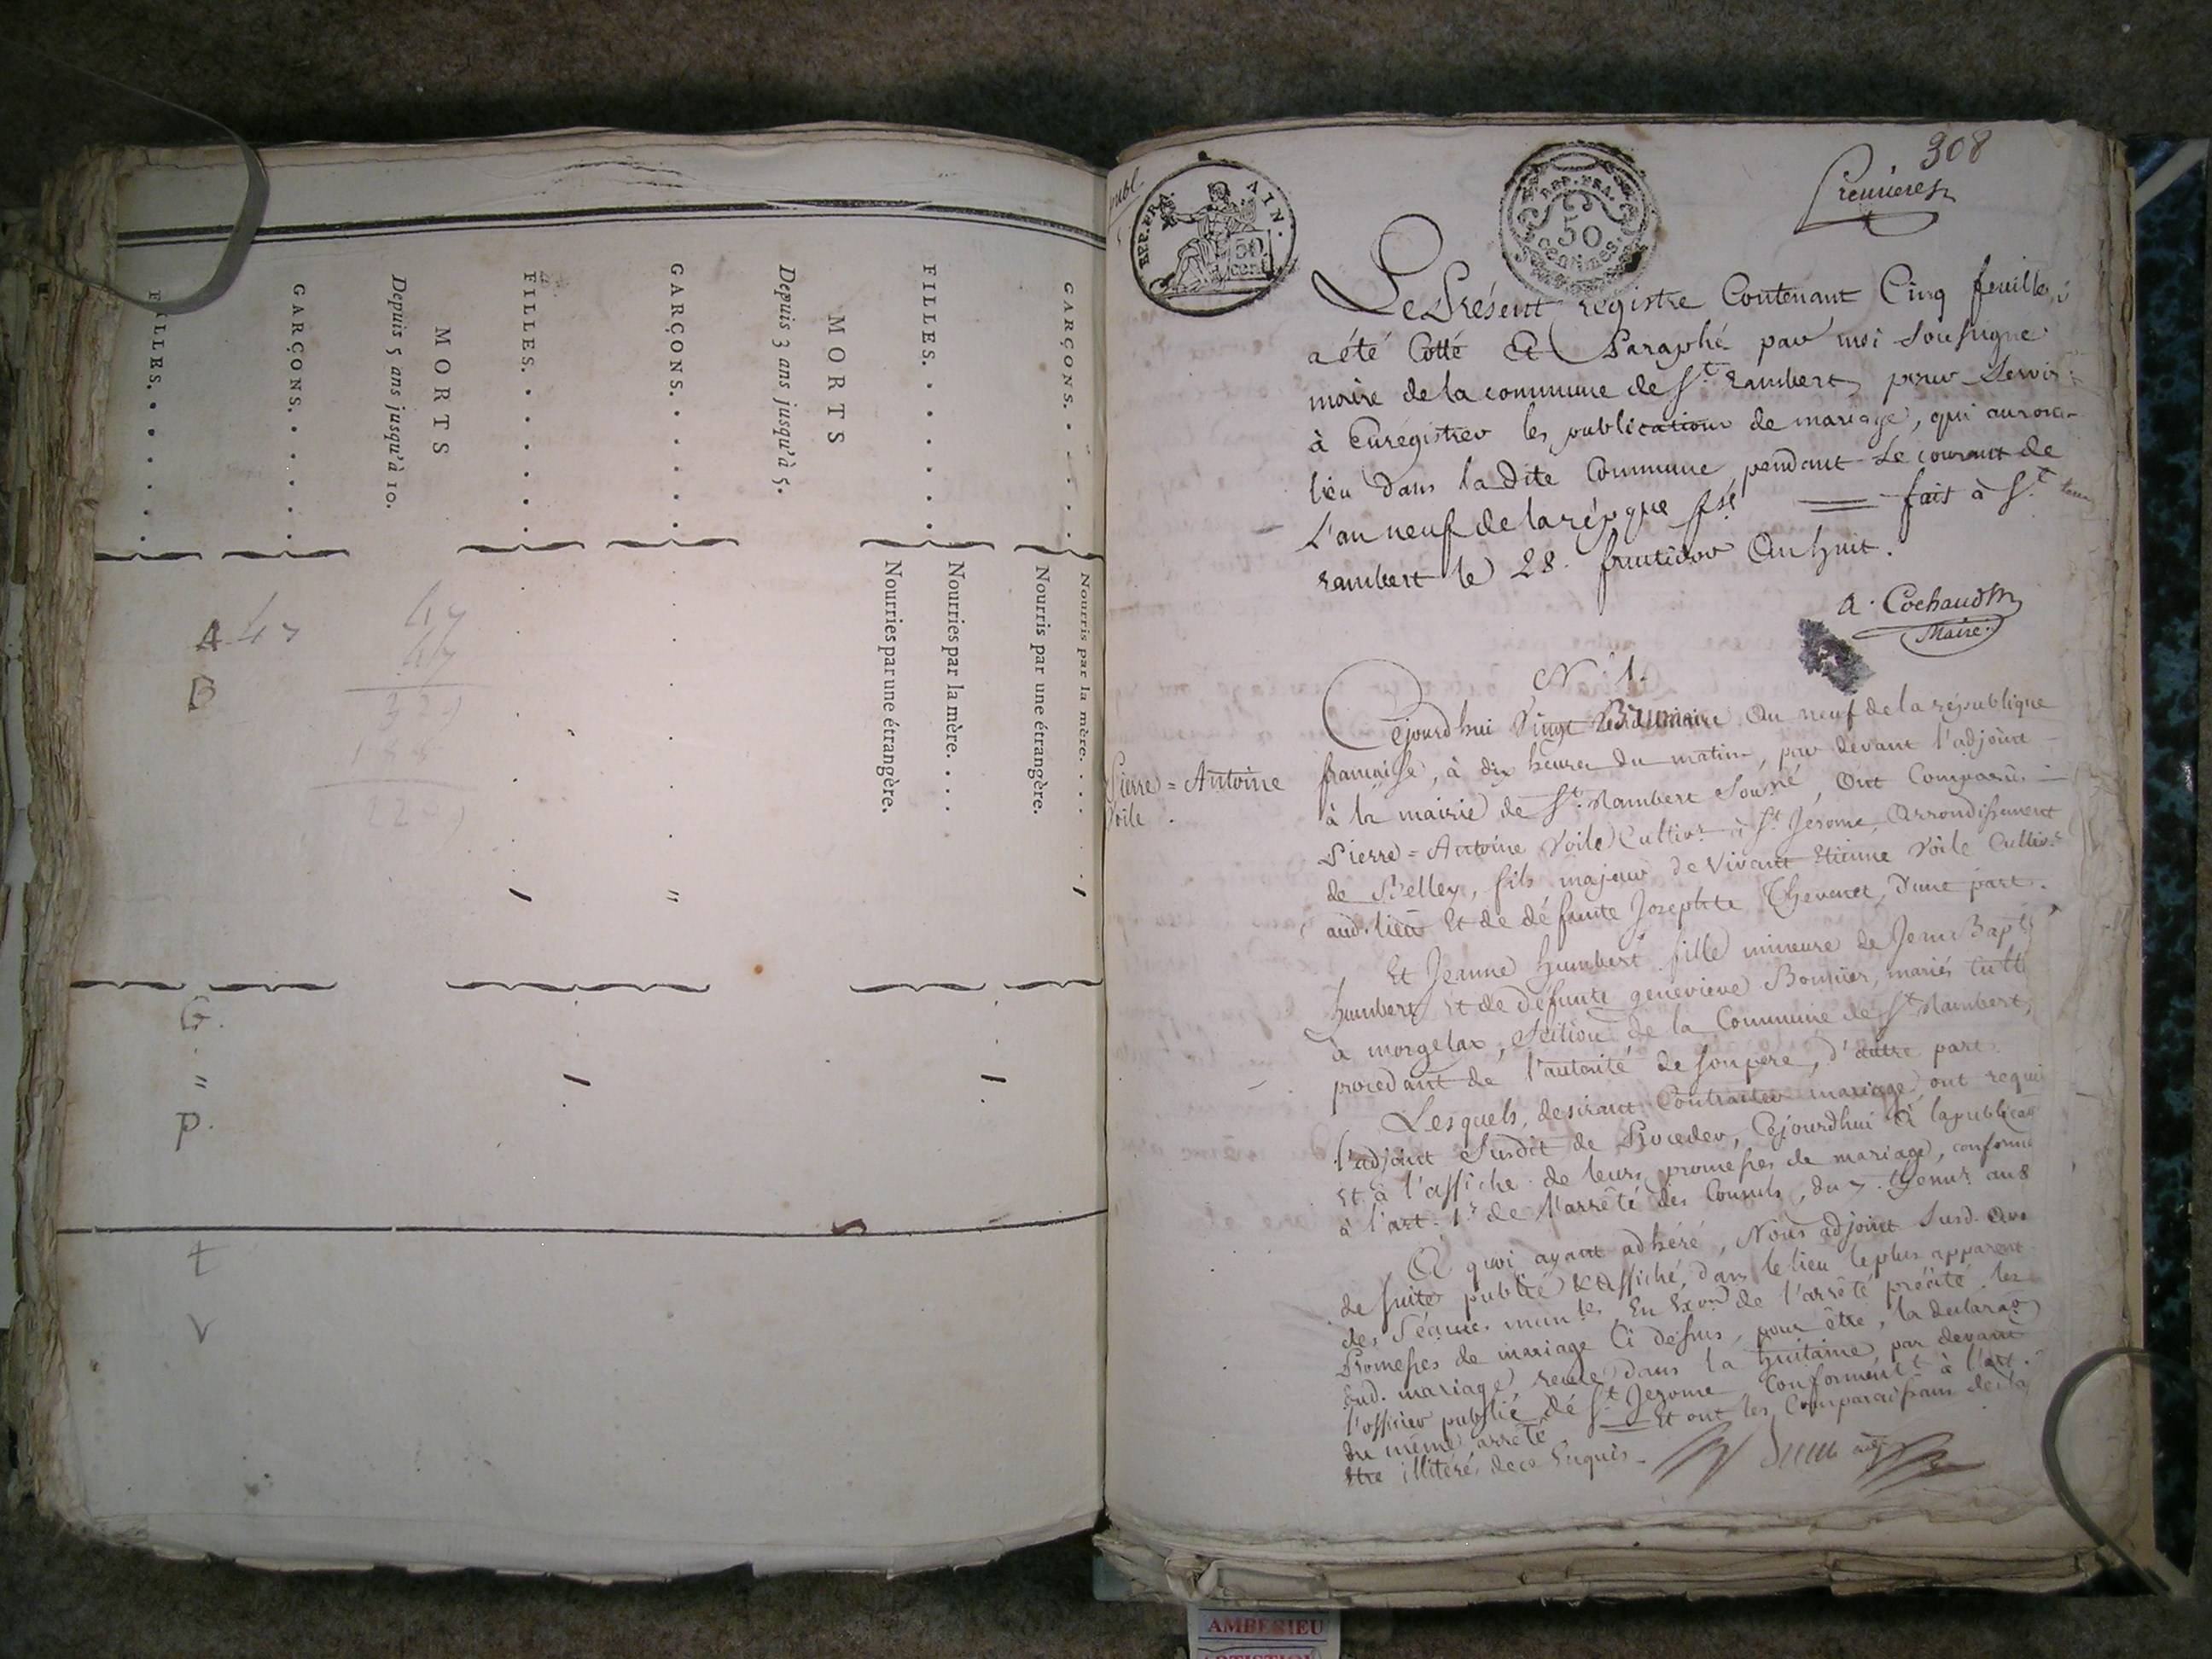 FILLES. . . . . .
GARÇONS. . . . . .
Depuis 5 ans jusqu'à 10.
MORTS
FILLES. . . . . .
GARÇONS. . . . . .
Depuis 3 ans jusqu'à 5.
MORTS
FILLES. . . . . .
GARÇONS. . . . .
Nourries par une étrangère.
Nourries par la mère. . . .
Nourris par une étrangère.
Nourris par la mère. . . .
A 47
B
47
47
G.
"
P.
t
V
308
REP. FRA. AIN.
50 cent
REP. FRA.
50
centimes
Premiere
Le Présent registre Contenant Cinq feuilles
a été Cotté Et Paraphé par moi Soussigné
maire de la commune de St. Rambert pour Servir
à Enrégistrer les publications de mariage, qui auron-
lieu dans la dite Commune pendant le courant de
L'an neuf de la répque fse = fait à St.
rambert le 28. fructidor An huit.
A. Cochaud
Maire.
N.° 1.
Cejourdhui Vingt Brumaire An neuf de la république
française, à dix heures du matin, par devant l'adjoint
à la mairie de St. Rambert Sousné, Ont Comparu
Pierre = Antoine
Voile.
Pierre = Antoine Voile Cultivr. à St. Jérome, Arrondissement
de Belley, fils majeur de Vivant Etienne Voile Cultivr.
aud. lieu Et de défunte Josephte Thevenet, d'une part.
Et Jeanne humbert fille mineure de Jean Bapte
humbert Et de défunte genevieve Bonnier, mariés Cult
à morgelax, Section de la Commune de St. Rambert,
procedant de l'autorité de son pere, d'autre part.
Lesquels, desirant Contracter mariage, ont requis
l'adjoint Susdit de Proceder, Cejourdhui à la publicaon
Et à l'affiche de leurs promesses de mariage, conformé
à l'art. 1r. de l'arrêté des Consuls, du 7. thermr. an 8
A quoi ayant adhéré, Nous adjoint Susd. Avons
de suite publié & Affiché, dans le lieu le plus apparent
des Séances munles. En Exon. de l'arrêté précité. les
Promesses de mariage Ci dessus, pour être, la declaraon
dud. mariage reçue dans la huitaine, par devant
l'officier public de St. Jerome Conformémt. à l'art.
du même arrêté. = Et ont les Comparaissans déclaré
Etre illitérés de ce Enquis.
AMBERIEU